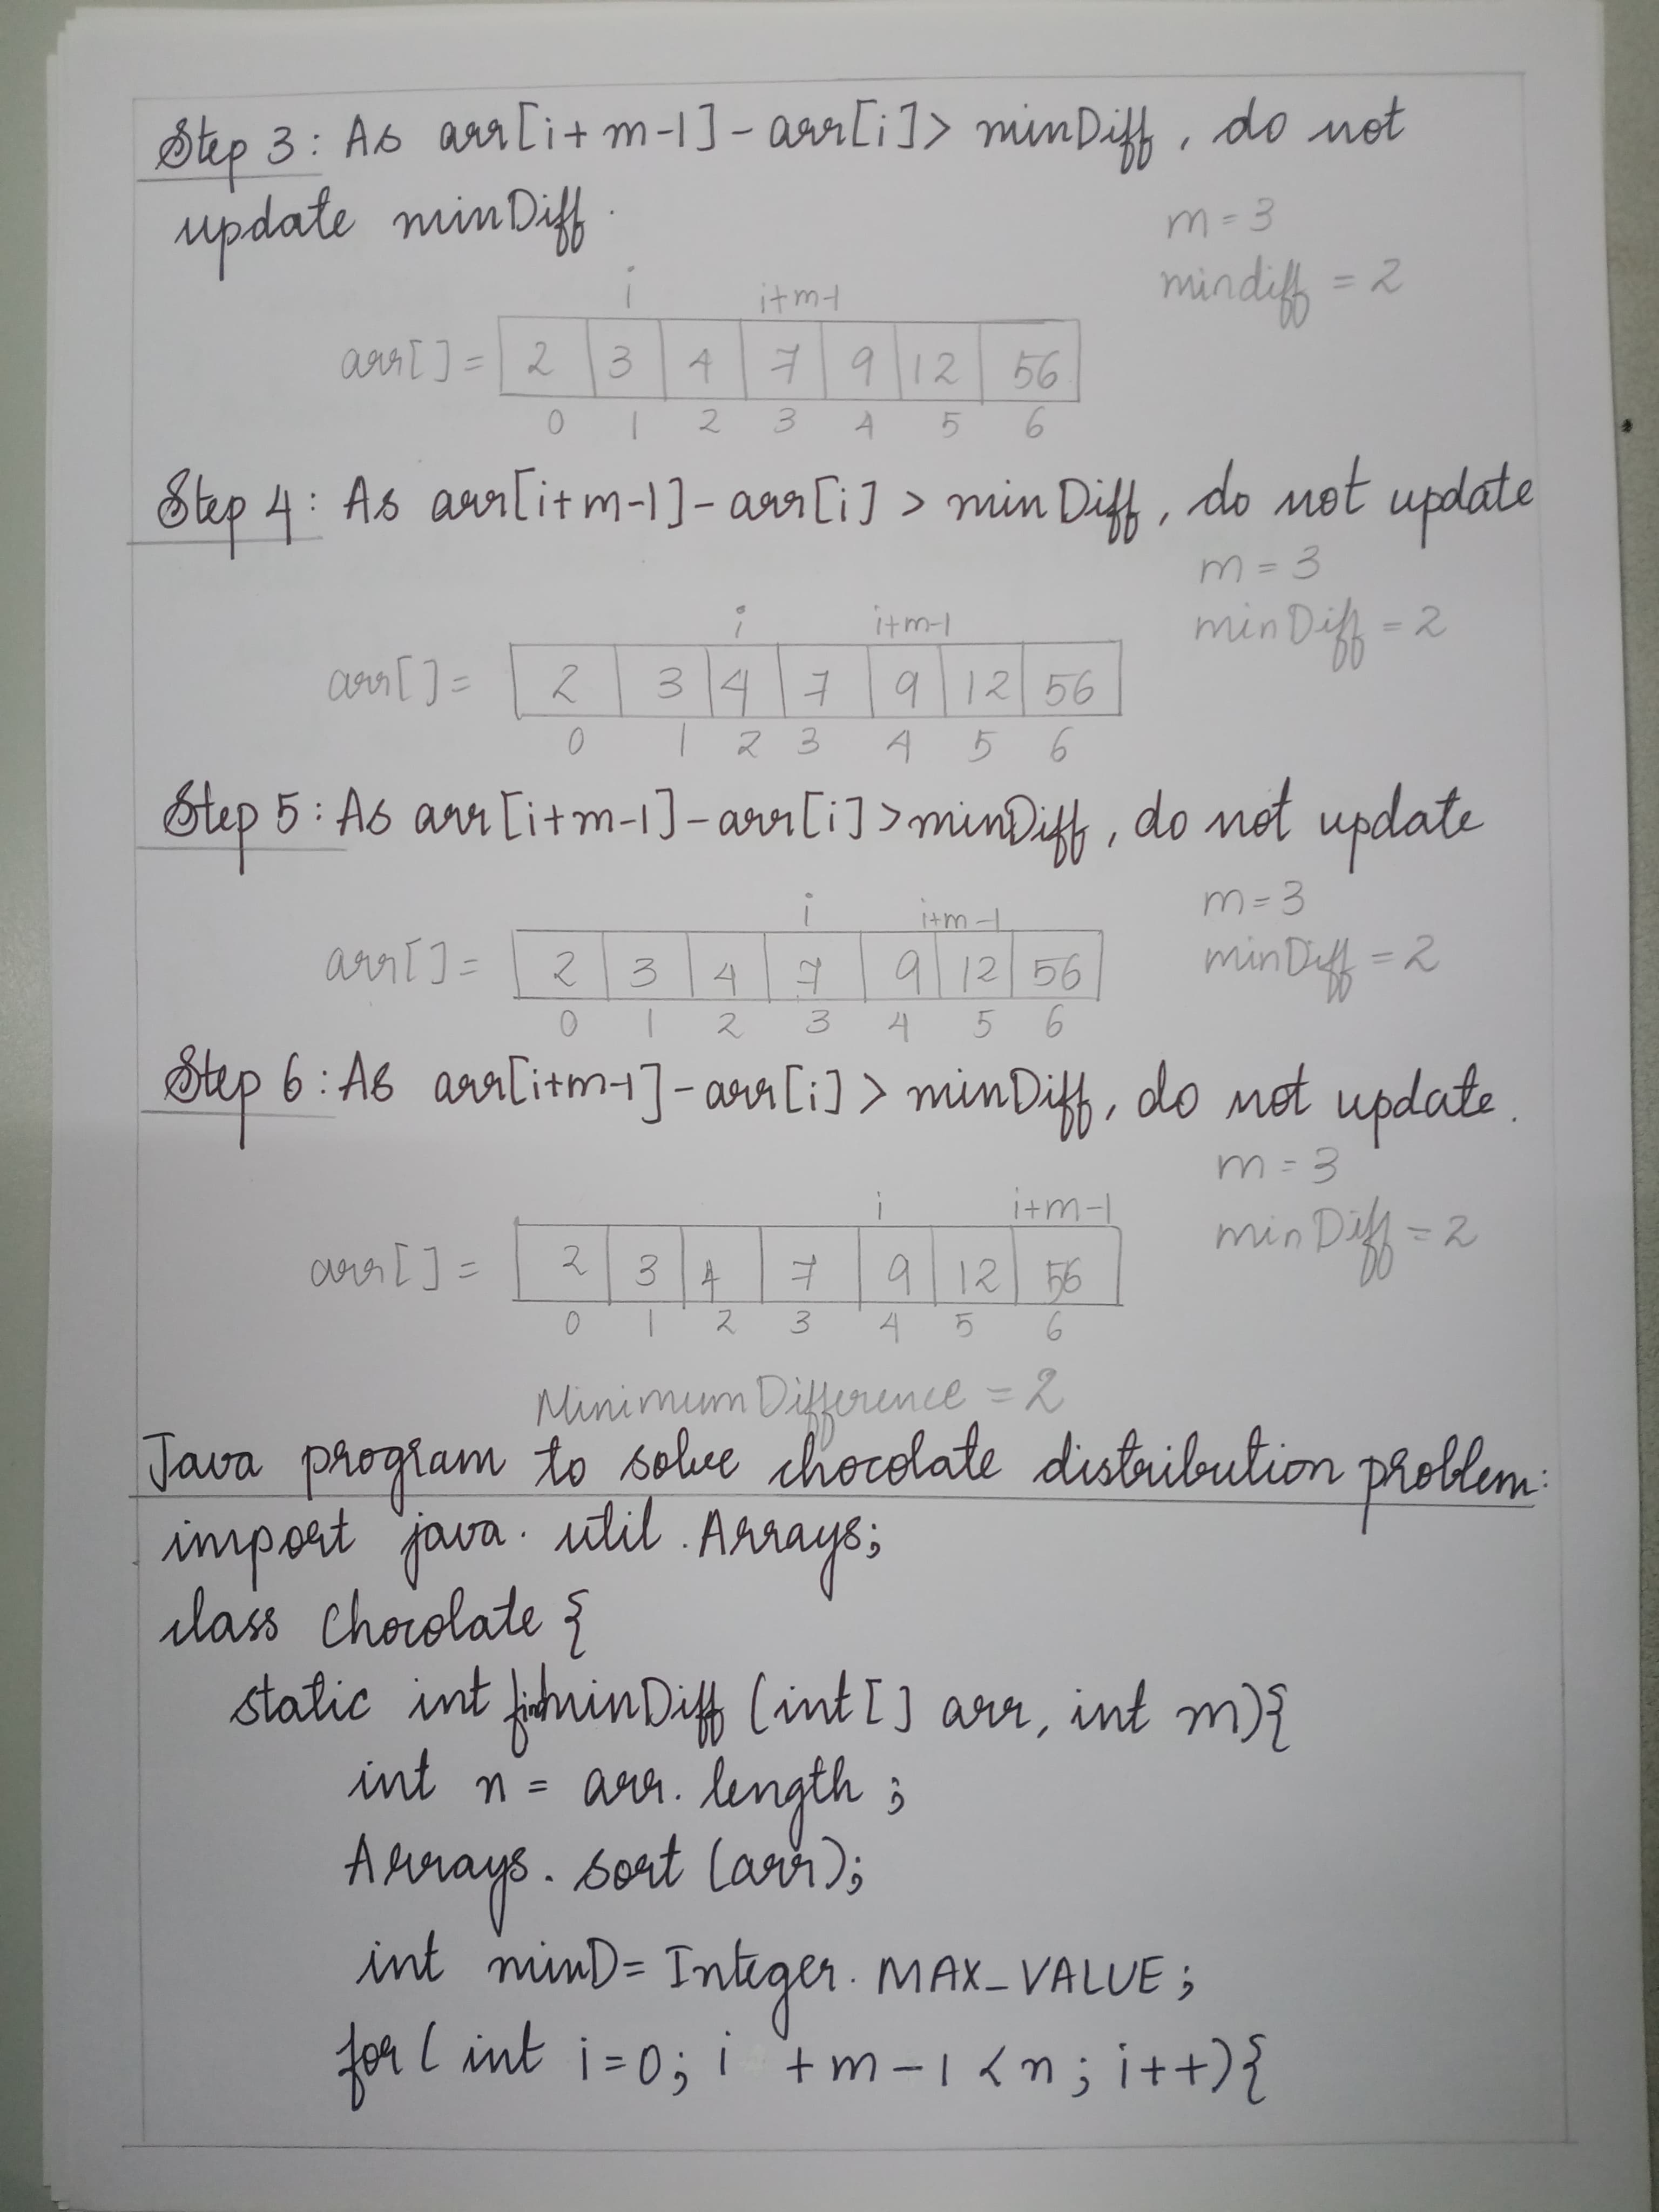 Step 3: As arr[i+m-1]-arr[i]> minDiff, do not
update minDiff.
m = 3
mindiff = 2
i i+m-1
arr[]= 2 3 4 7 9 12 56
0 1 2 3 4 5 6
Step 4: As arr[i+m-1]-arr[i] > minDiff, do not update
m = 3
minDiff = 2
i i+m-1
arr[]= 2 3 4 7 9 12 56
0 1 2 3 4 5 6
Step 5: As arr[i+m-1]-arr[i]>minDiff, do not update
m=3
minDiff = 2
i i+m-1
arr[]= 2 3 4 7 9 12 56
0 1 2 3 4 5 6
Step 6: As arr[i+m-1]-arr[i]> minDiff, do not update.
m = 3
minDiff = 2
i i+m-1
arr[] = 2 3 4 7 9 12 56
0 1 2 3 4 5 6
MinimumDifference = 2
Java program to solve chocolate distribution problem:
import java.util.Arrays;
class Chocolate {
static int findminDiff (int[] arr, int m){
int n = arr.length;
Arrays.sort (arr);
int minD= Integer.MAX_VALUE;
for( int i=0; i +m-1<n; i++){